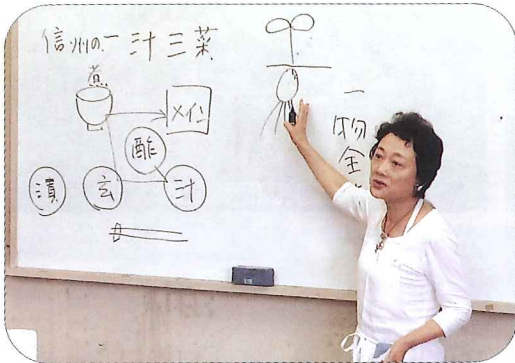 信州の一汁三菜
煮
メイン
酢
漬
玄
汁
一物全